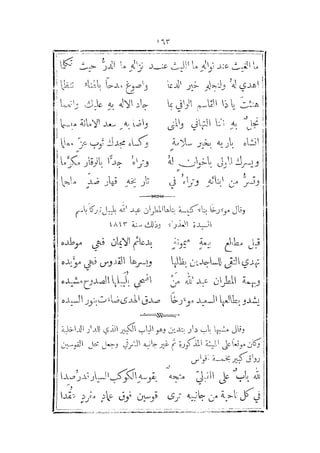 ١٦٣
ما الغيث عند نواله ما الليث عند نزاله ما الدرّ حيث تكلما
اهدي لهُ ولنجلهِ خير الدعا واصوغ مدحًا بالثناء تنظما
هنئت ياذا القاسم الوافي بما جاد الاله بهِ عليك وانعما
نجلٌ بهِ لنا التهاني والمنى واضا بهِ سعد الامانة
انشاه باريه بخير سلامةٍ وكساه مجدك ثوب عزّ
ويسرك المولى باخوان لهُ وتراهُ جدًّا بالوقار مكرّما
وتسرُّ من ابنائهِ وتراهُ في تاريخهِ قهار ضدّ
وقال مؤرخًا بناء كنيسة بناها المطران عبد الله بليبل زكريا باسم
السيدة العذراء وذلك سنة ١٨١٣
قبل مطالع بيعةٍ ميمونةٍ بدعائم الايمان فهي موطده
تهدي التقى للساجدين بظلها وبسرها القدوس فهي مؤيده
وبهمة المطران عبد الله منْ اضحى الصدوح مشيده
يشدو بطالعها السعيد مؤرخًا صدق الهدى ضاءت بنور السيده
وقال مشبها باب دار بتدين وهو الباب الكبير الذي للدار الداخلية
وكان موقعًا على الهيئة المذكورة ثم غير جانبه الشرقي وجعل محل القوسين
رواق كبير بخمسة اقواس
لله بابٌ على متجه بقوسهِ الكوكب السيار قد رصدا
في كل ناحية من جانبيه ترى قوسين فوق عمادٍ مفردٍ